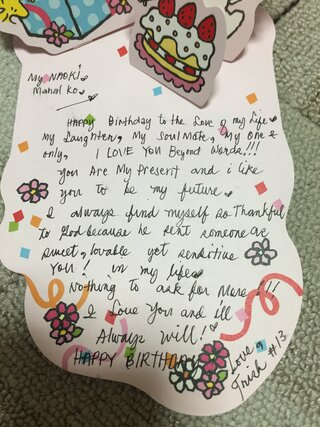 My NAOKi
Mahal Ko
HAPPY Birthday to the Love of my Life
My Laughter, My SoulMate, My one &
only, I LOVE YOU Beyond Words!!!
You Are My Present and i like
you to be my future
I always find myself so Thankful
To God because he sent someone as
sweet, lovable yet sensitive
YOU! in my life
Nothing to ask for More!!!
I Love You and i'll
Always Will!
HAPPY BIRTHDAY
Love,
Trish #13